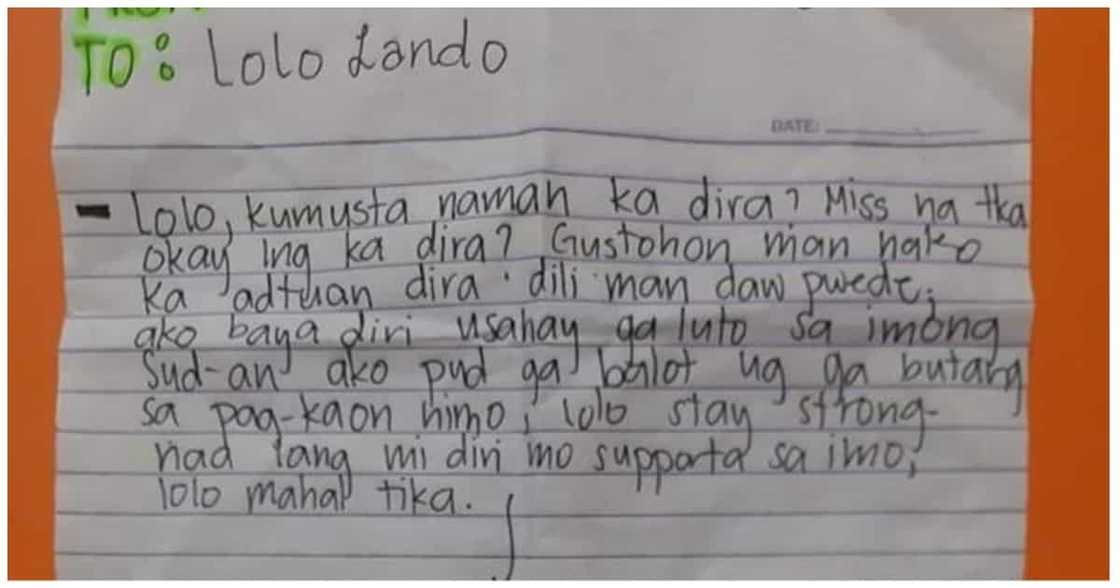 TO: Lolo Lando
DATE:
- Lolo, kumusta naman ka dira? Miss na tka
okay ing ka dira? Gustohon man nako
ka adtuan dira. dili man daw pwede;
ako baya diri usahay ga luto sa imong
Sud-an ako pud ga balot ug ga butang
sa pag-kaon nimo, lolo stay strong-
nad lang mi diri mo supporta sa imo,
lolo mahal tika.